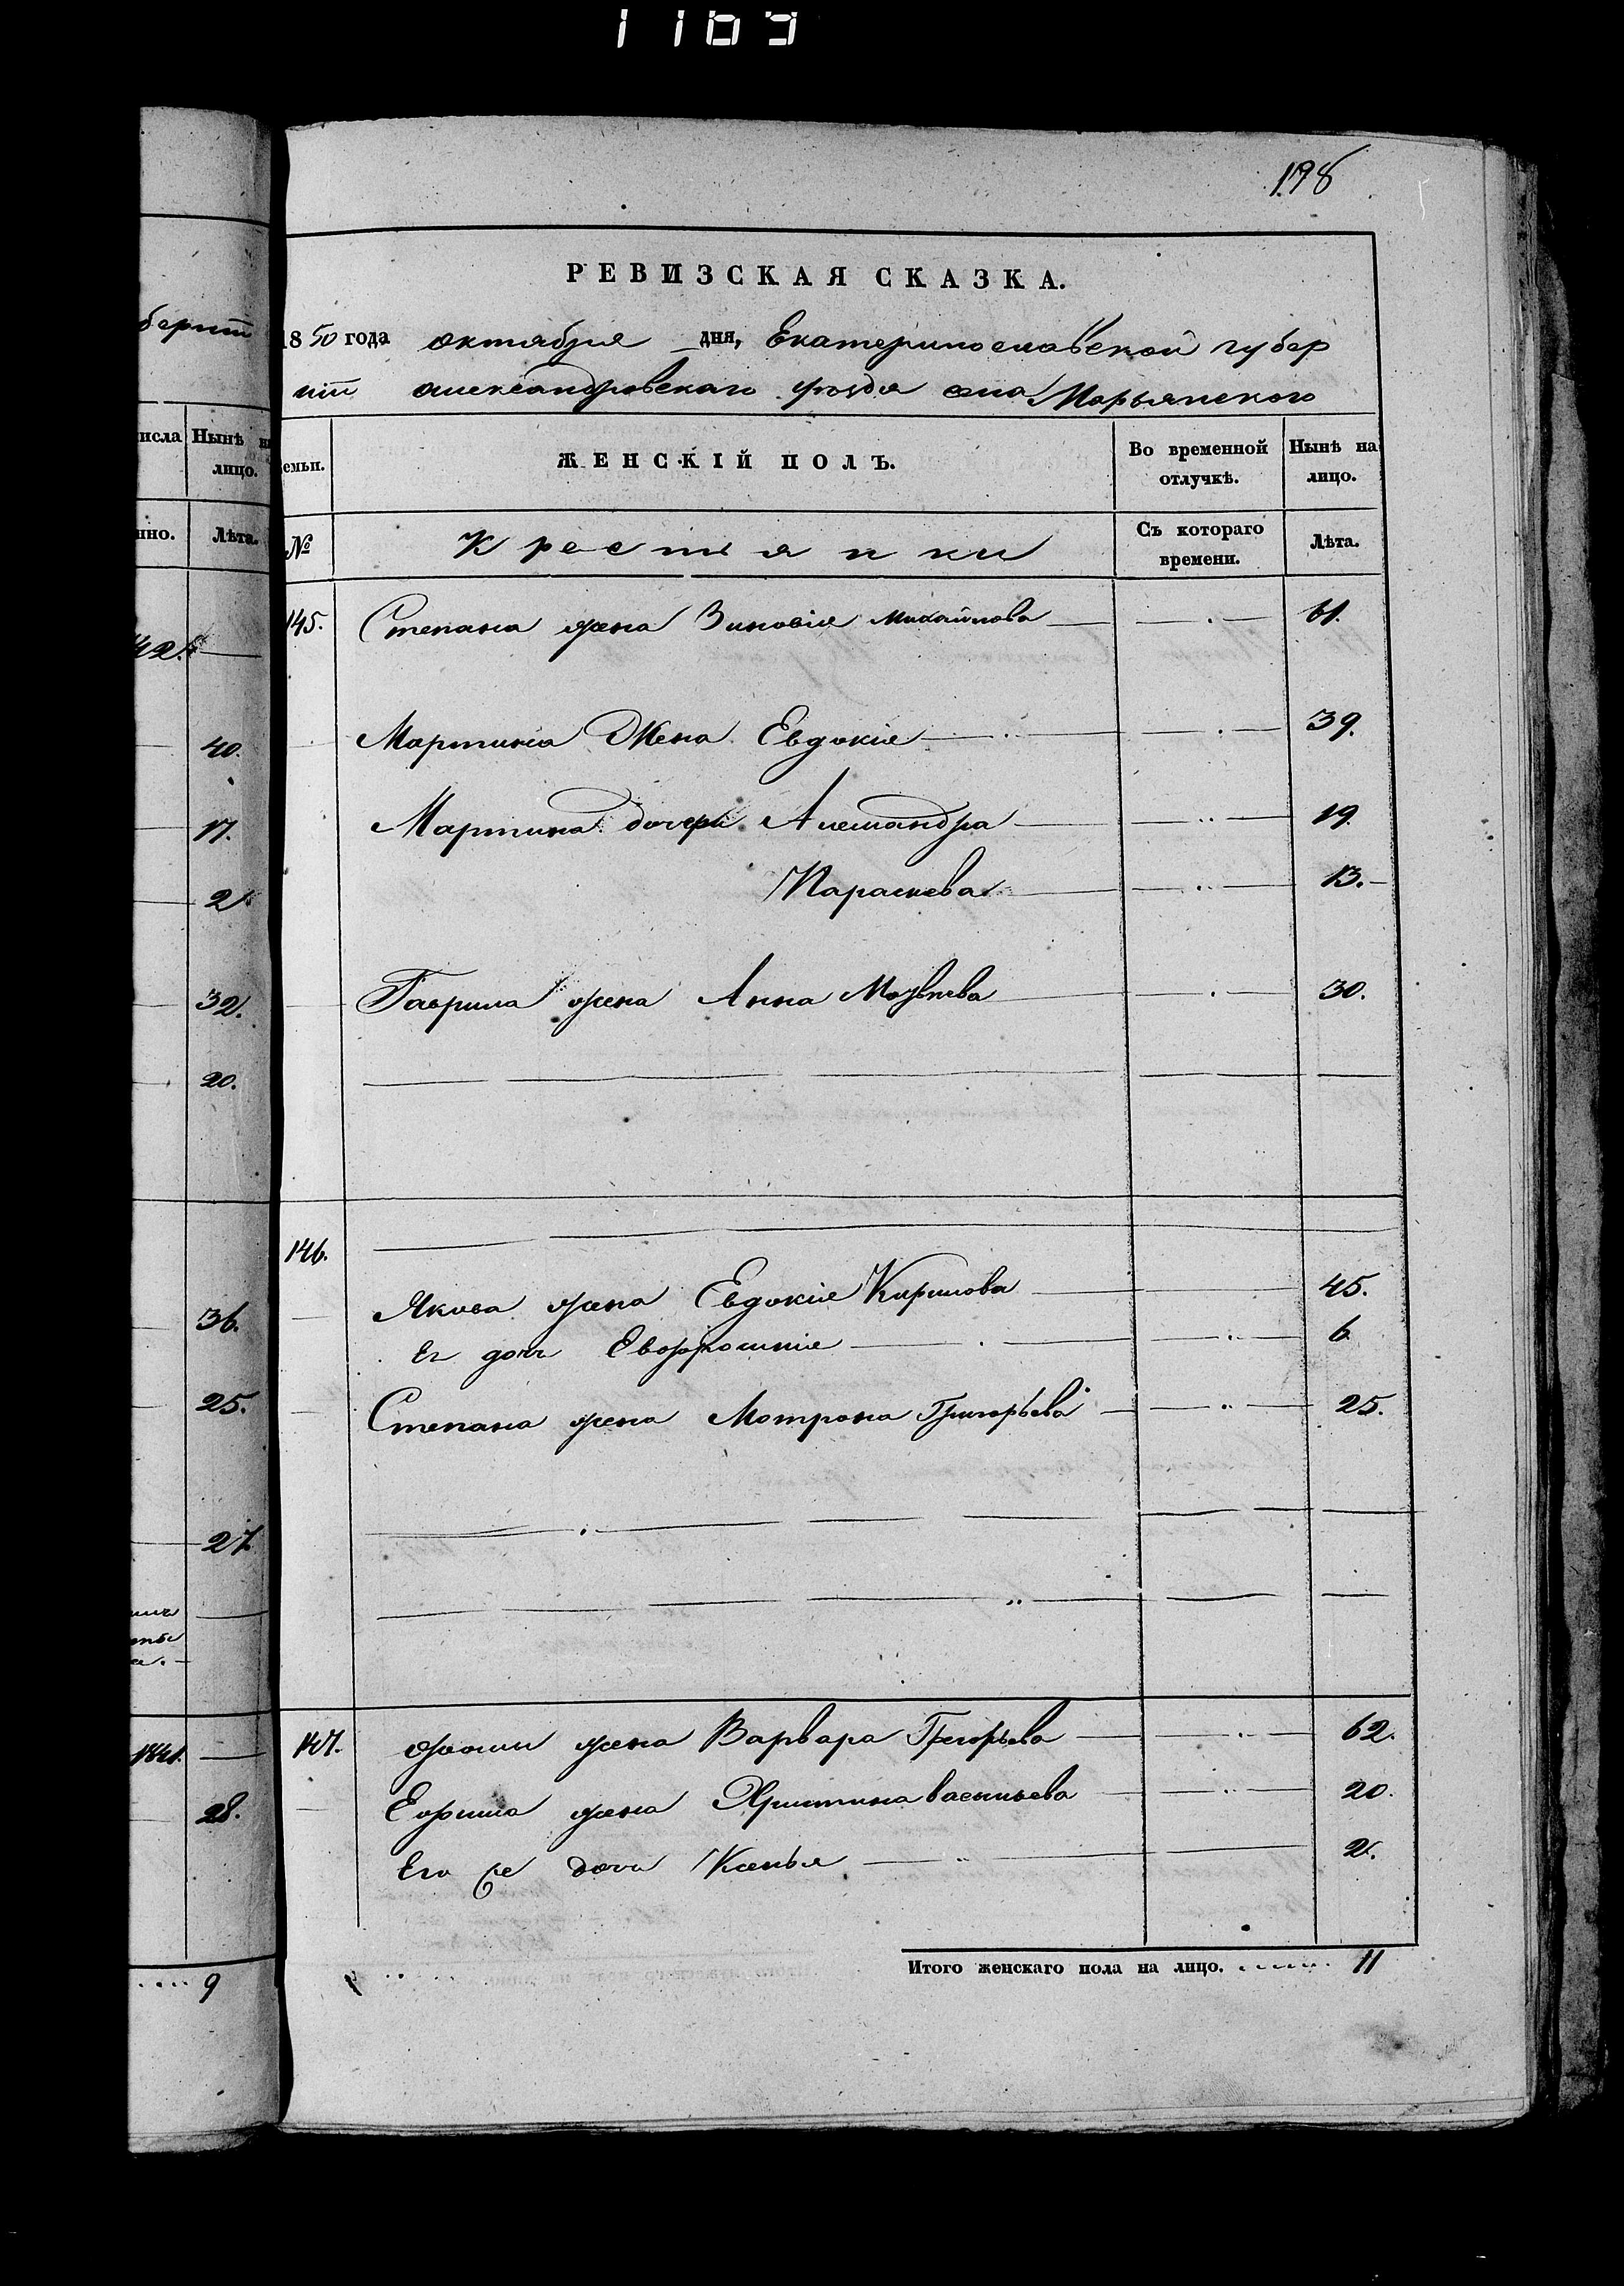 1169
198
РЕВИЗСКАЯ СКАЗКА.
1850 года октября дня, Екатеринославской губер
нiи александровскаго уезда села Марьянского
Семьи.
ЖЕНСКIЙ ПОЛЪ.
Во временной отлучкѣ.
Нынѣ на лицо.
№
Крестьянки
Съ котораго времени.
Лѣта.
145. Степана жена Зиновiя Михайлова 61.
Мартина Жена Евдокiя 39.
Мартина дочери Алешандра 19.
Параскева 13.
Гаврила жена Анна Матвѣева 30.
146.
Якова жена Евдокiя Кирилова 45.
Ег дочь Евфрошинiя 6
Степана жена Мотрона Григорьева 25.
147. жена Варвара Григорьева 62.
Ефима жена Христина васильева 20.
Его же дочь Ксенья 2.
Итого женскаго пола на лицо. 11
берни
числа
Нынѣ на
лицо.
нно.
Лѣта.
42.
40.
17.
2
32.
20.
36.
25.
27
1841.
28.
9